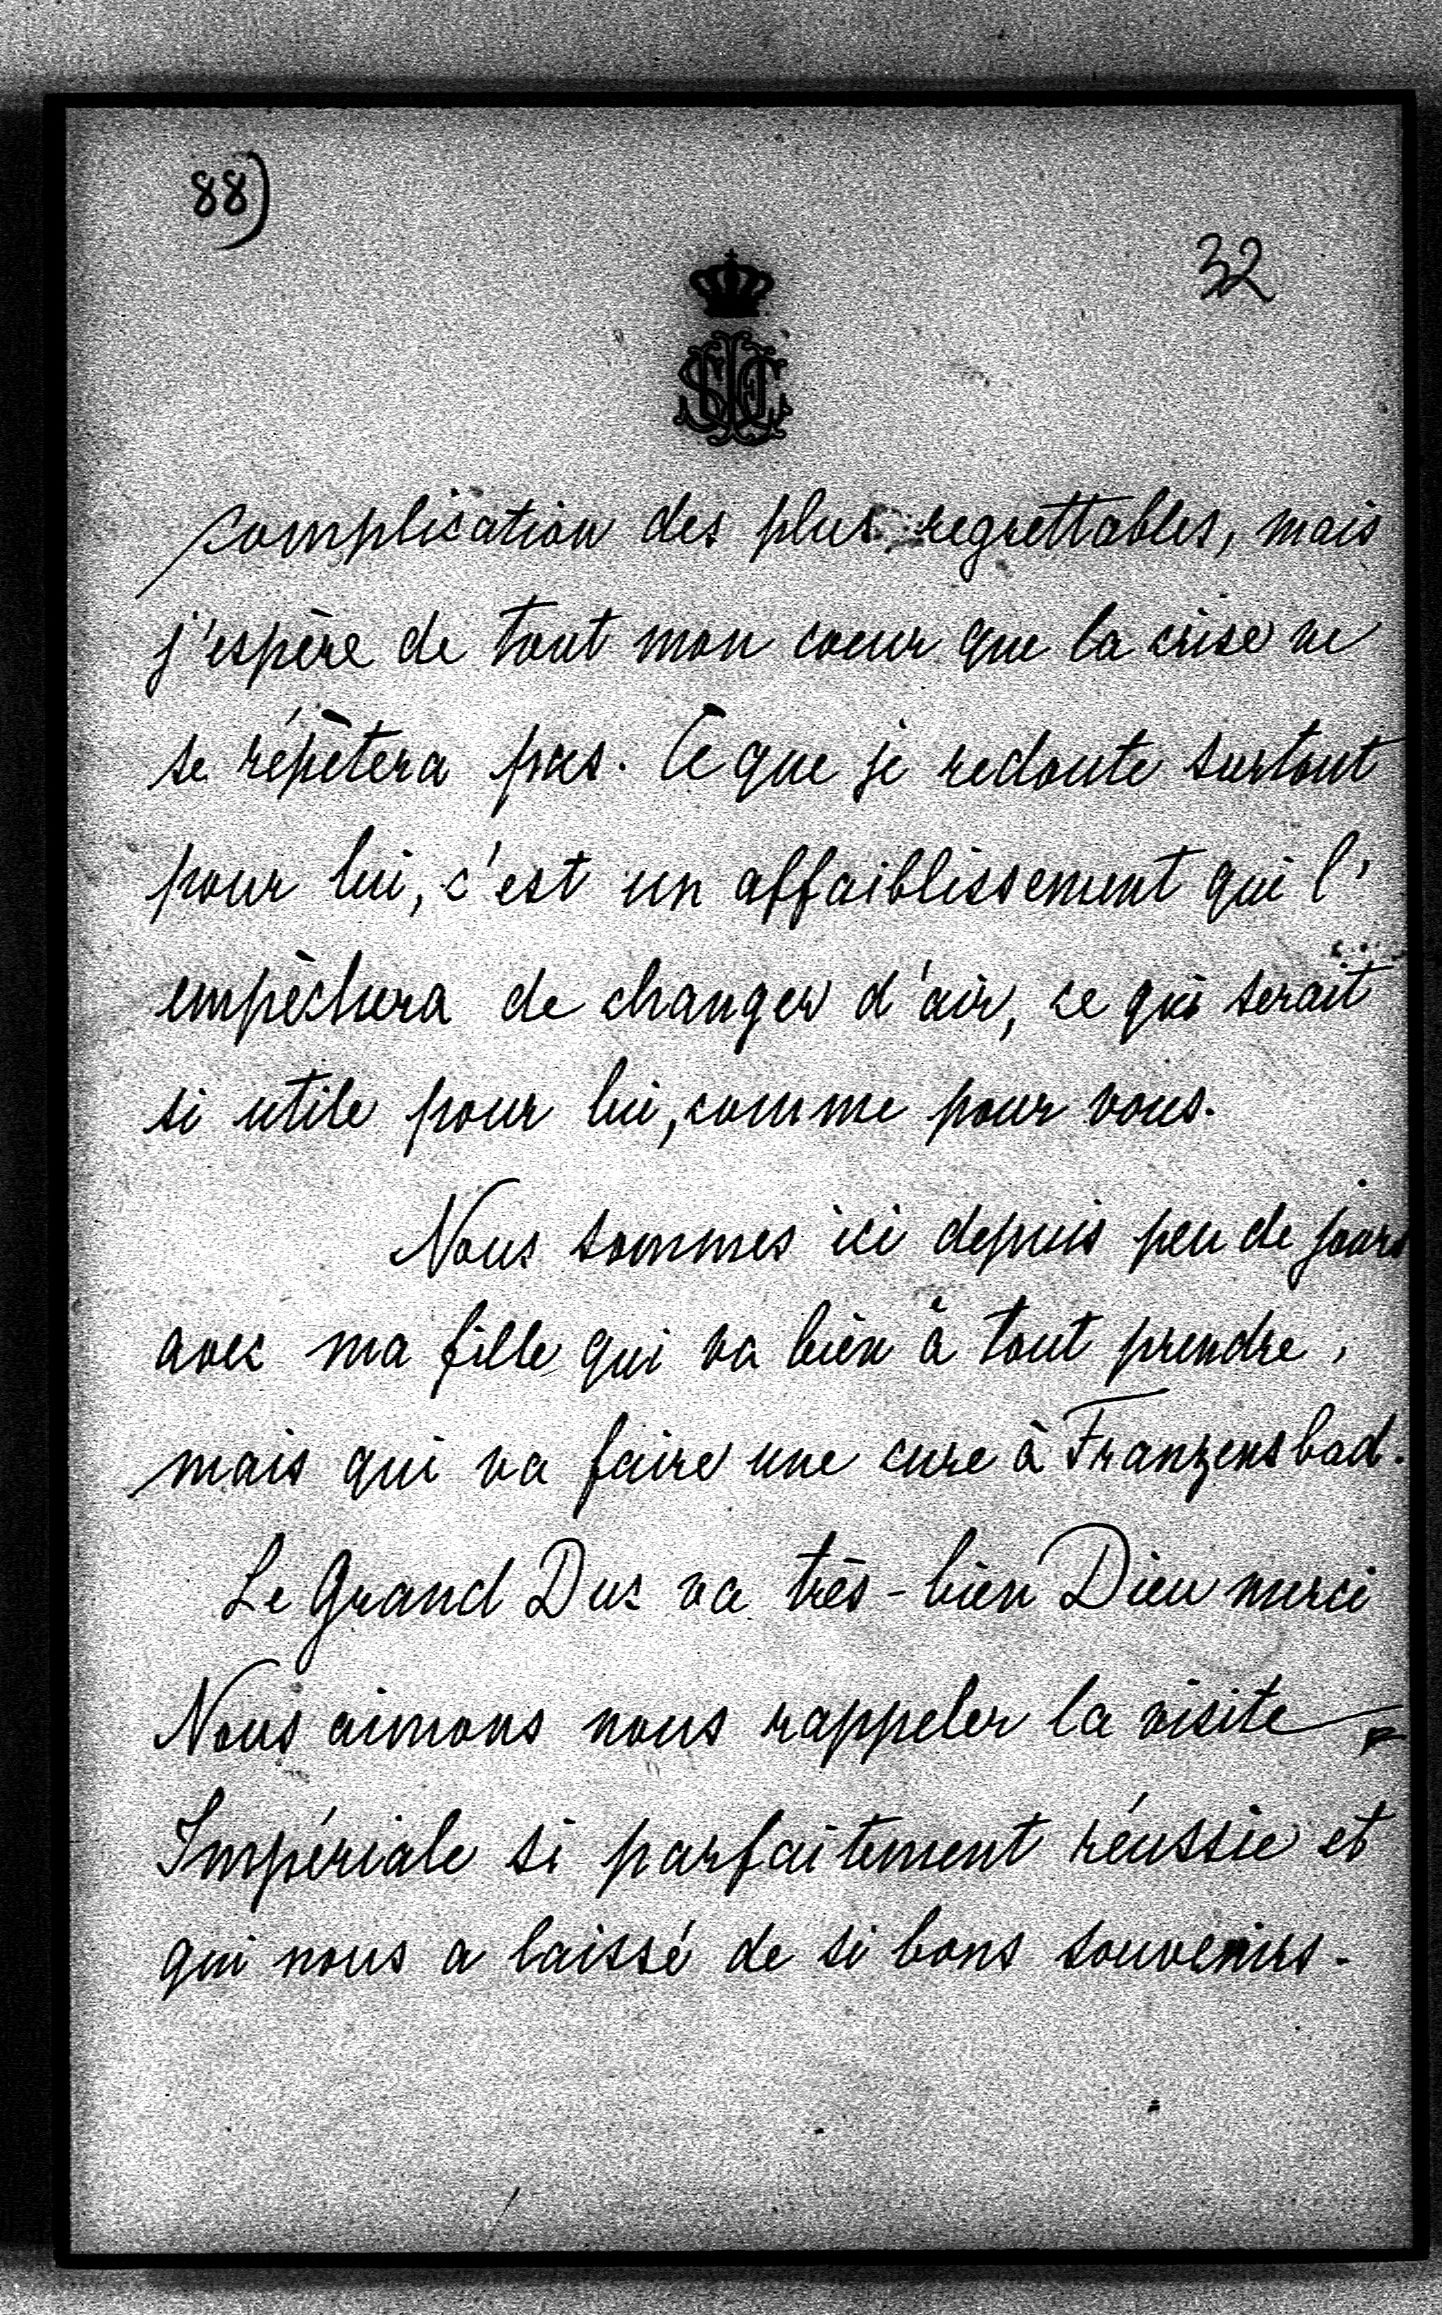 88)
32
complication des plus regrettables, mais
j'espère de tout mon coeur que la crise ne
se répètera pas. Ce que je redoute surtout
pour lui, c'est un affaiblissement qui l'
empèchera de changer d'air, ce qui serait
si utile pour lui, comme pour vous.
Nous sommes ici depuis peu de jours
avec ma fille qui va bien à tout prendre,
mais qui va faire une cure à Franzensbad.
Le Grand Duc va très-bien Dieu merci
Nous aimons nous rappeler la visite
Impériale si parfaitement réussie et
qui nous a laissé de si bons souvenirs.